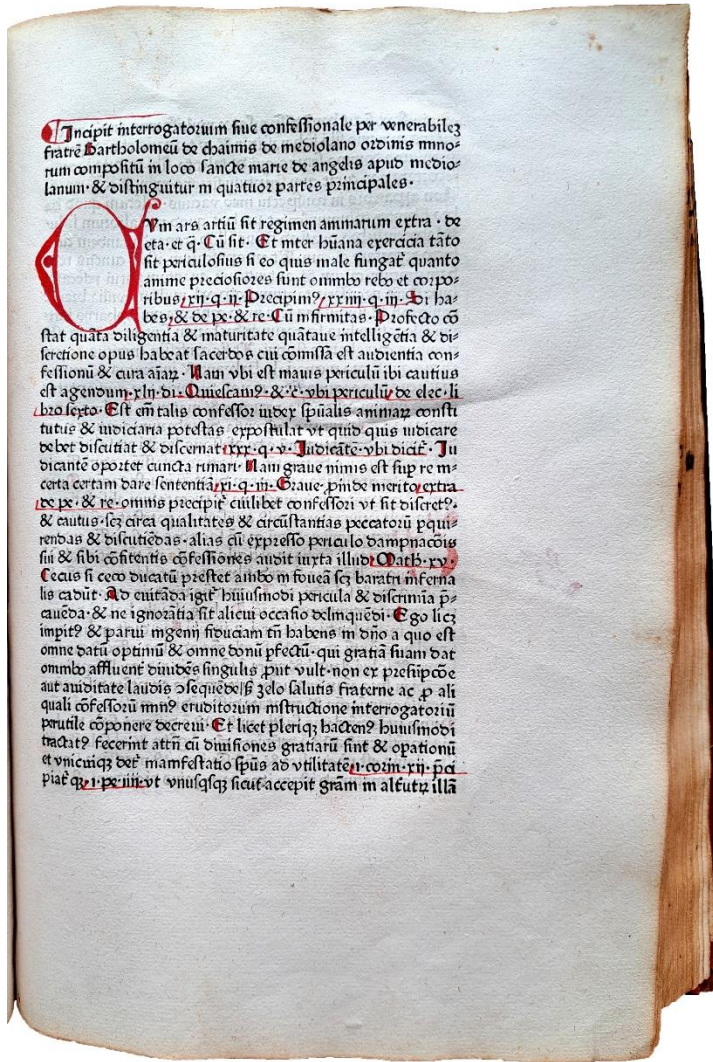 Incipit interrogatorium siue confessionale per venerabilez
fratrē Bartholomeū de chaimis de mediolano ordinis mino-
rum compositū in loco sancte marie de angelis apud medio-
lanum · & distinguitur in quatuor partes principales ·
CVm ars artiū sit regimen animarum extra · de
eta · et q̄ · Cū sit · Et inter hūana exercicia tāto
sit periculosius si eo quis male fungat᷑ quanto
anime preciosiores sunt omnibo rebo et corpo-
ribus xii · q · ii · Precipimꝰ xxiiii · q · iii · Si ha-
bes & de pe · & re · Cū infirmitas · Profecto cō
stat quāta diligentia & maturitate quātaue intelligētia & di-
scretione opus habeat sacerdos cui cōmissa est audientia con-
fessionū & cura aīaꝝ · Nam vbi est maius periculū ibi cautius
est agendum · xlii · di · Quiescamꝰ · & ē · vbi periculū de elec · li
bro sexto · Est em̄ talis confessor iudex sp̄ualis animaꝝ consti
tutus & iudiciaria potestas expostulat vt quid quis iudicare
debet discutiat & discernat xxx · q · v · Iudicāte · vbi dicit᷑ · Iu
dicantē oportet cuncta rimari · Nam graue nimis est sup̄ re in-
certa certam dare sententiā xi · q · iii · Graue · ꝓinde merito extra
de pe · & re · omnis precipit᷑ cuilibet confessori vt sit discretꝰ ·
& cautus · scꝫ circa qualitates & circūstantias peccatorū ꝑqui-
rendas & discutiēdas · alias cū expresso periculo dampnacōis
sui & sibi cōfitentis cōfessiones audit iuxta illud Math · xv ·
Cecus si ceco ducatū prestet ambo in foueā scꝫ baratri inferna
lis cadūt · Ad euitāda igit᷑ huiusmodi pericula & discrimīa p̄-
cauēda · & ne ignorātia sit alicui occasio delinquēdi · Ego licꝫ
imꝑit᷑ & parui ingenij fiduciam tn̄ habens in dn̄o a quo est
omne datū optimū & omne donū ꝑfectū · qui gratiā suam dat
omnibo affluent᷑ diuidēs singulis ꝓut vult · non ex presūpcōe
aut auiditate laudis ↄsequēde sꝫ zelo salutis fraterne ac ꝓ ali
quali cōfessorū minꝰ eruditorum instructione interrogatoriū
perutile cōponere decreui · Et licet pleriqꝫ hactenꝰ huiusmodi
tractatꝰ fecerint attn̄ cū diuisiones gratiarū sint & oꝑationū
et vnicuiqꝫ det᷑ manifestatio sp̄us ad vtilitatē · i · corin · xii · p̄ci
piat᷑ qꝫ · i · pe · iiii · vt vnusqsqꝫ sicut accepit grām in alt᷑utrꝫ illā